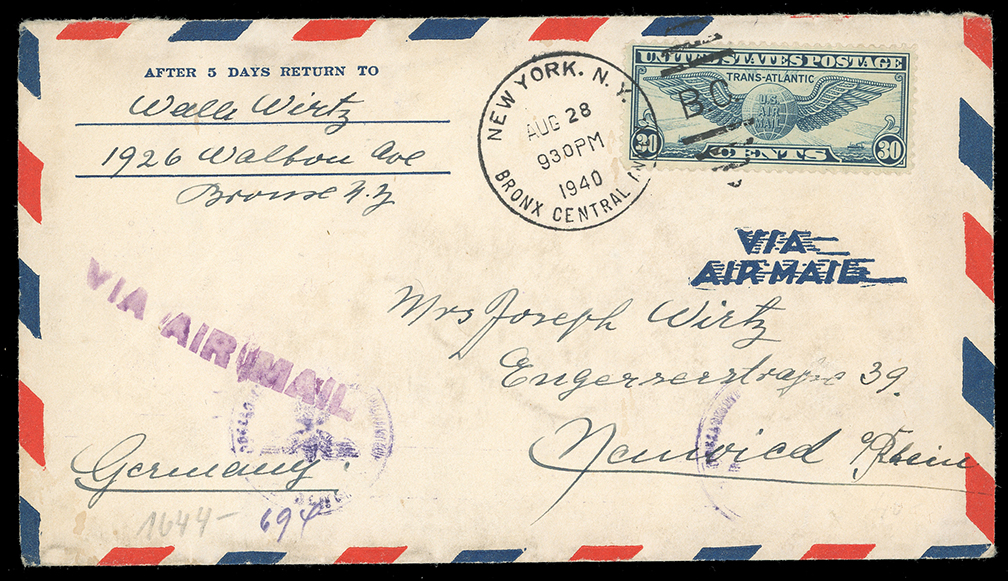 AFTER 5 DAYS RETURN TO
Walle Wirtz
1926 Walton Ave
Bronx N.Y
NEW YORK, N.Y.
AUG 28
930PM
1940
BRONX CENTRAL
B.C.
UNITED STATES POSTAGE
TRANS-ATLANTIC
U.S.
AIR
MAIL
30 CENTS 30
VIA
AIR MAIL
VIA AIR MAIL
Mrs Joseph Wirtz
Engerserstraße 39.
Neuwied a/Rhein
Germany.
1644-
694